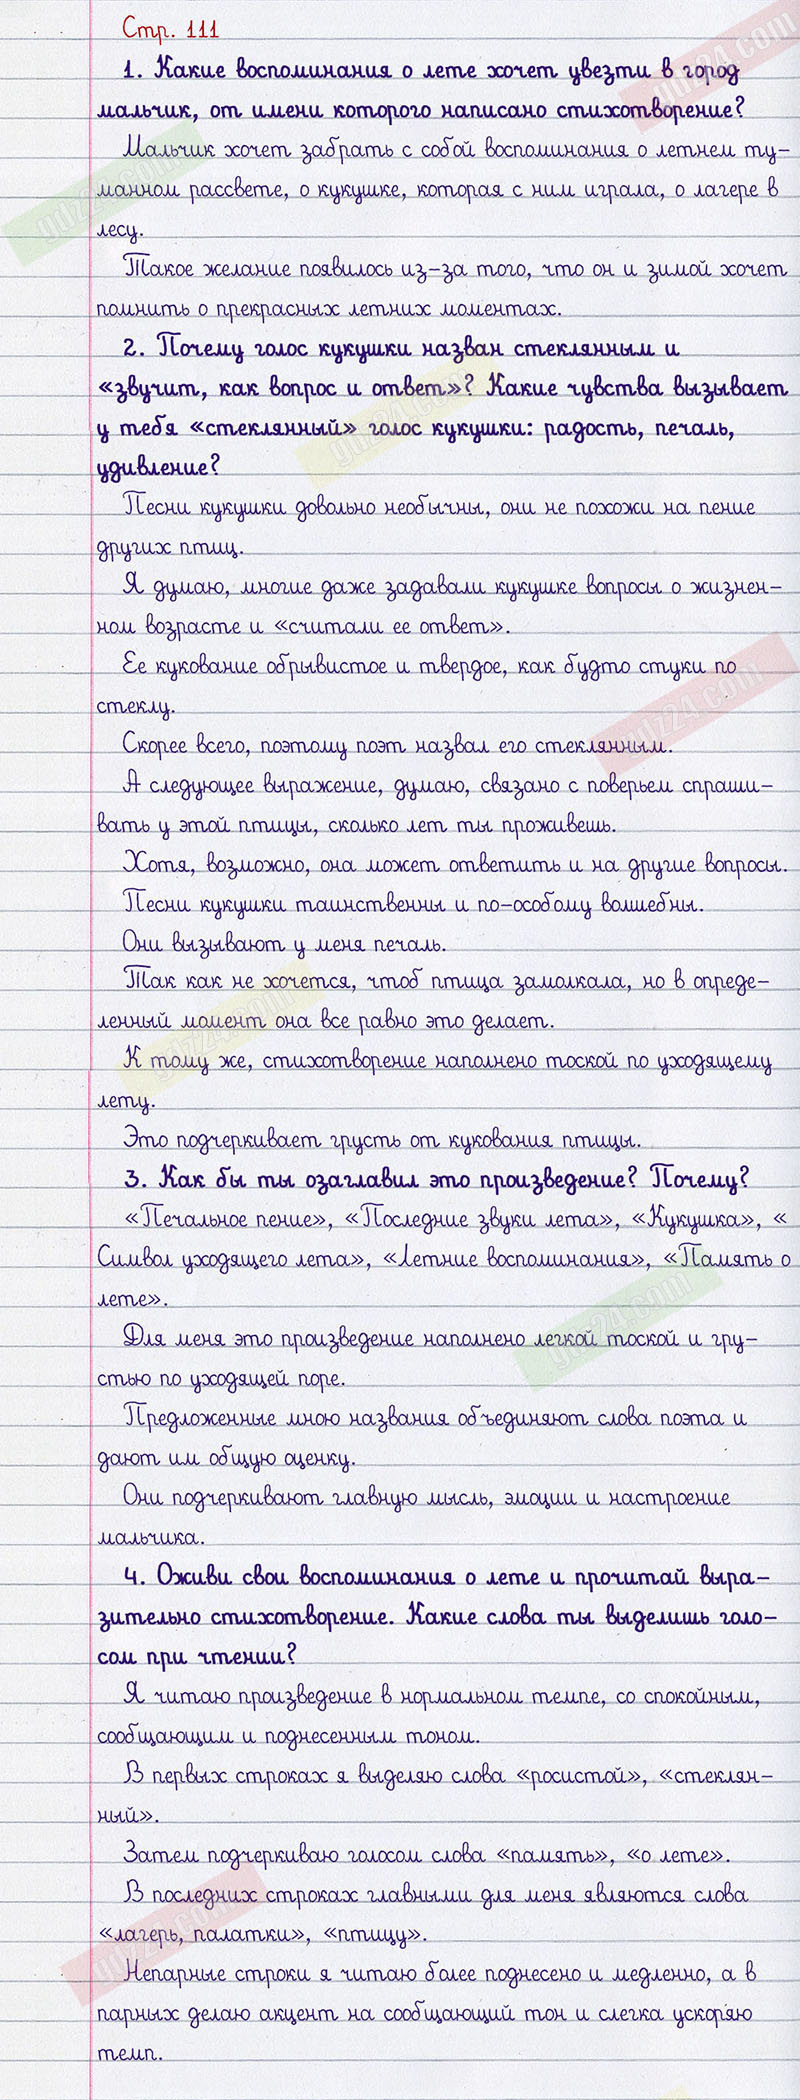 Стр. 111
1. Какие воспоминания о лете хочет увезти в город
мальчик, от имени которого написано стихотворение?
Мальчик хочет забрать с собой воспоминания о летнем ту-
манном рассвете, о кукушке, которая с ним играла, о лагере в
лесу.
Такое желание появилось из-за того, что он и зимой хочет
помнить о прекрасных летних моментах.
2. Почему голос кукушки назван стеклянным и
«звучит, как вопрос и ответ»? Какие чувства вызывает
у тебя «стеклянный» голос кукушки: радость, печаль,
удивление?
Песни кукушки довольно необычны, они не похожи на пение
других птиц.
Я думаю, многие даже задавали кукушке вопросы о жизнен-
ном возрасте и «считали ее ответ».
Ее кукование обрывистое и твердое, как будто стуки по
стеклу.
Скорее всего, поэтому поэт назвал его стеклянным.
А следующее выражение, думаю, связано с поверьем спраши-
вать у этой птицы, сколько лет ты проживешь.
Хотя, возможно, она может ответить и на другие вопросы.
Песни кукушки таинственны и по-особому волшебны.
Они вызывают у меня печаль.
Так как не хочется, чтоб птица замолкала, но в опреде-
ленный момент она все равно это делает.
К тому же, стихотворение наполнено тоской по уходящему
лету.
Это подчеркивает грусть от кукования птицы.
3. Как бы ты озаглавил это произведение? Почему?
«Печальное пение», «Последние звуки лета», «Кукушка», «
Символ уходящего лета», «Летние воспоминания», «Память о
лете».
Для меня это произведение наполнено легкой тоской и гру-
стью по уходящей поре.
Предложенные мною названия объединяют слова поэта и
дают им общую оценку.
Они подчеркивают главную мысль, эмоции и настроение
мальчика.
4. Оживи свои воспоминания о лете и прочитай выра-
зительно стихотворение. Какие слова ты выделишь голо-
сом при чтении?
Я читаю произведение в нормальном темпе, со спокойным,
сообщающим и поднесенным тоном.
В первых строках я выделяю слова «росистой», «стеклян-
ный».
Затем подчеркиваю голосом слова «память», «о лете».
В последних строках главными для меня являются слова
«лагерь, палатки», «птицу».
Непарные строки я читаю более поднесено и медленно, а в
парных делаю акцент на сообщающий тон и слегка ускоряю
темп.
gdz24.com
gdz24.com
gdz24.com
gdz24.com
gdz24.com
gdz24.com
gdz24.com